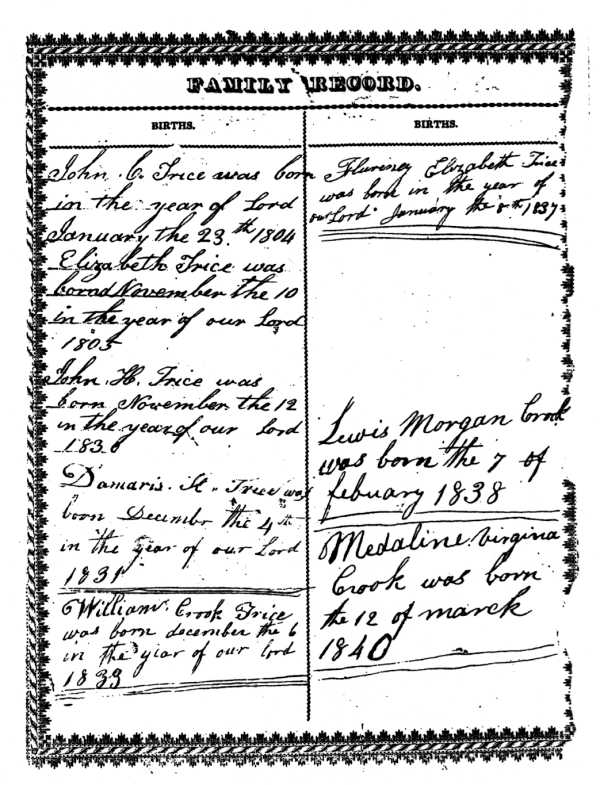 FAMILY RECORD.
BIRTHS.
John C. Trice was born
in the year of Lord
January the 23th 1804
Elizabeth Trice was
born November the 10
in the year of our Lord
1805
John H. Trice was
born November the 12
in the year of our lord
1830
Damaris Trice was
boorn December the 4th
in the year of our Lord
1831
William Crook Trice
was born december the 6
in the year of our lord
1833
BIRTHS.
Elizabeth Trice
was born in the year of
our Lord January the 8th 1837
Lewis Morgan Crook
was born the 7 of
febuary 1838
Medaline virgina
Crook was born
the 12 of march
1840